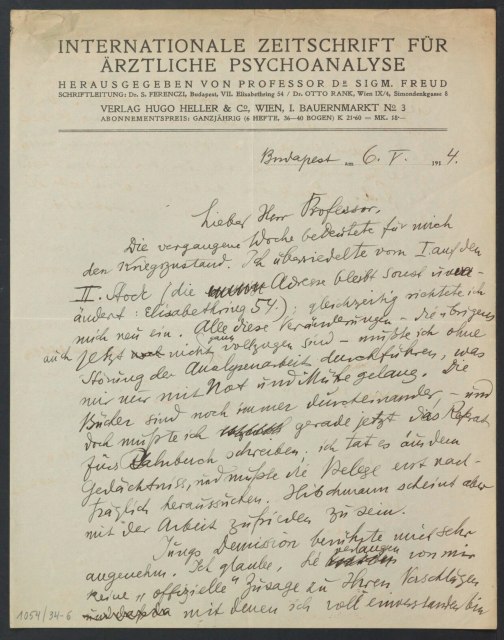 INTERNATIONALE ZEITSCHRIFT FÜR
ÄRZTLICHE PSYCHOANALYSE
HERAUSGEGEBEN VON PROFESSOR DR SIGM. FREUD
SCHRIFTLEITUNG: Dr. S. FERENCZI, Budapest, VII. Elisabethring 54 / Dr. OTTO RANK, Wien IX/4, Simondenkgasse 8
VERLAG HUGO HELLER & Co, WIEN, I. BAUERNMARKT No 3
ABONNEMENTSPREIS: GANZJÄHRIG (6 HEFTE, 36–40 BOGEN) K 21·60 = MK. 18·—
Budapest am 6. V. 1914.
Lieber Herr Professor,
Die vergangene Woche bedeutete für mich
den Kriegszustand. Ich übersiedelte vom I. auf den
II. Stock (die Adresse bleibt sonst unver-
ändert: Elisabethring 54.); gleichzeitig richtete ich
mich neu ein. Alle diese Veränderungen – die übrigens
auch jetzt nicht ganz vollzogen sind – mußte ich ohne
Störung der Analysenarbeit durchführen, was
mir nur mit Not und Mühe gelang. Die
Bücher sind noch immer durcheinander, – und
doch mußte ich gerade jetzt das Referat
fürs Jahrbuch schreiben; ich tat es aus dem
Gedächtniss, und mußte die Belege erst nach-
träglich heraussuchen. Hitschmann scheint aber
mit der Arbeit zufrieden zu sein.
Jungs Demission berührte mich sehr
angenehm. Ich glaube, Sie verlangen von mir
keine „offizielle" Zusage zu Ihren Vorschlägen
mit denen ich voll einverstanden bin
1054/34-6